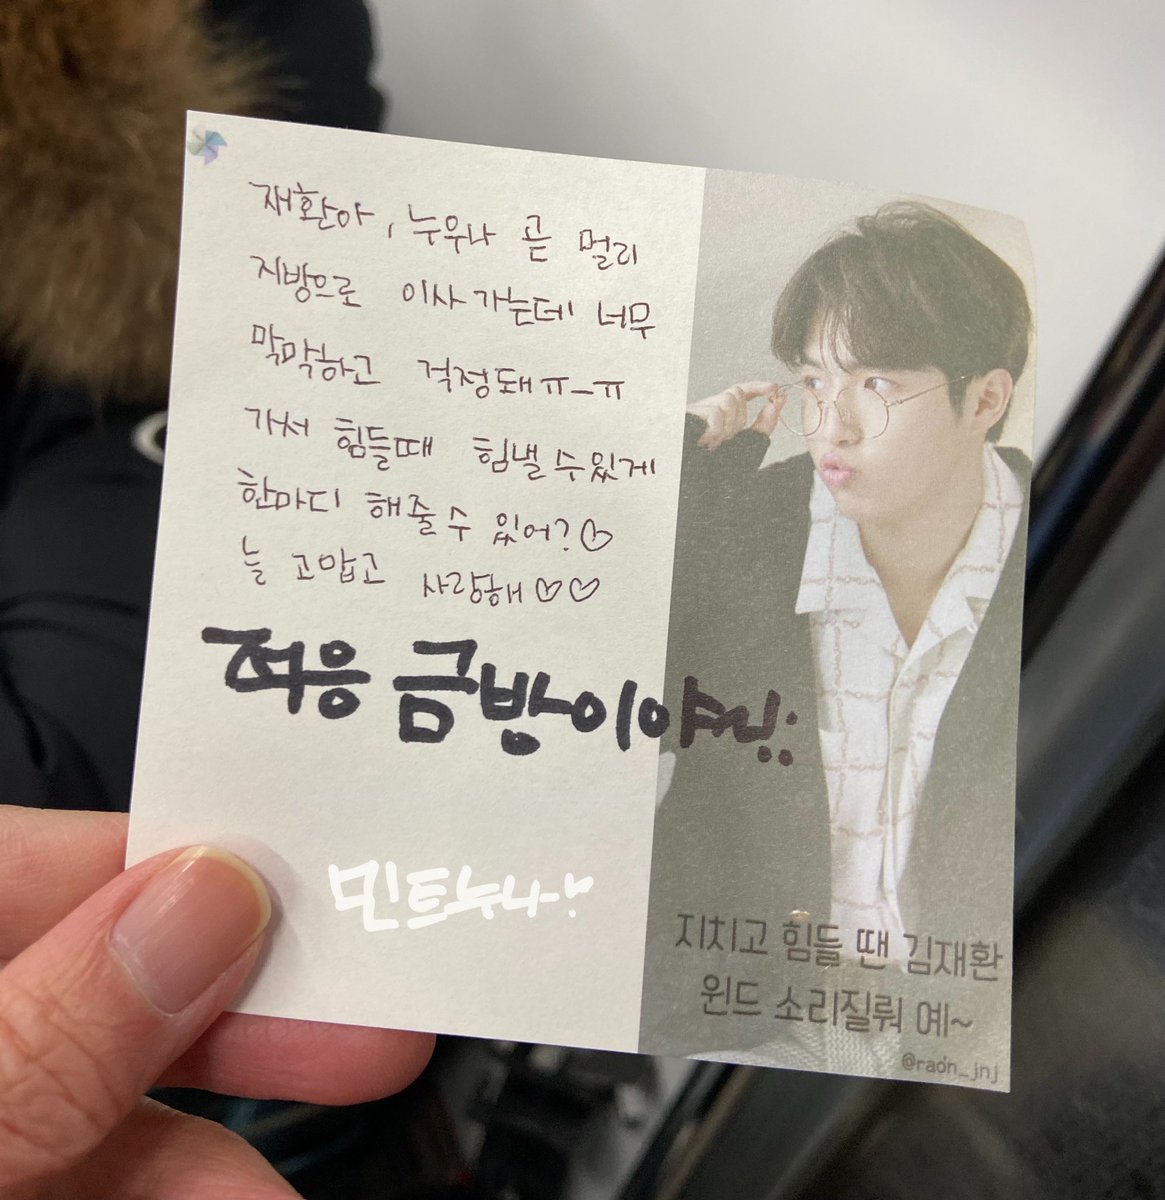 재환아, 누우나 곧 멀리
지방으로 이사가는데 너무
막막하고 걱정돼ㅠ-ㅠ
가서 힘들때 힘낼 수 있게
한마디 해줄 수 있어?♡
늘 고맙고 사랑해♡♡
적응 금방이야
민트누나~!
지치고 힘들 땐 김재환
윈드 소리질뤄 예~
@raon_jnj